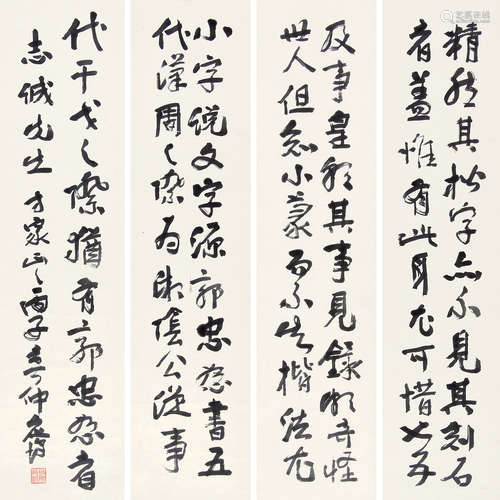 精然其楷字亦不見其刻石
者蓋惟有此耳尤可惜也五
及事皇朝其事見錄頗奇怪
世人但知小篆而不知楷法尤
小字說文字源郭忠恕書五
代漢周之際為湘陰公從事
代干戈之際猶有郭忠恕者
志誠先生方家正之丙子春仲